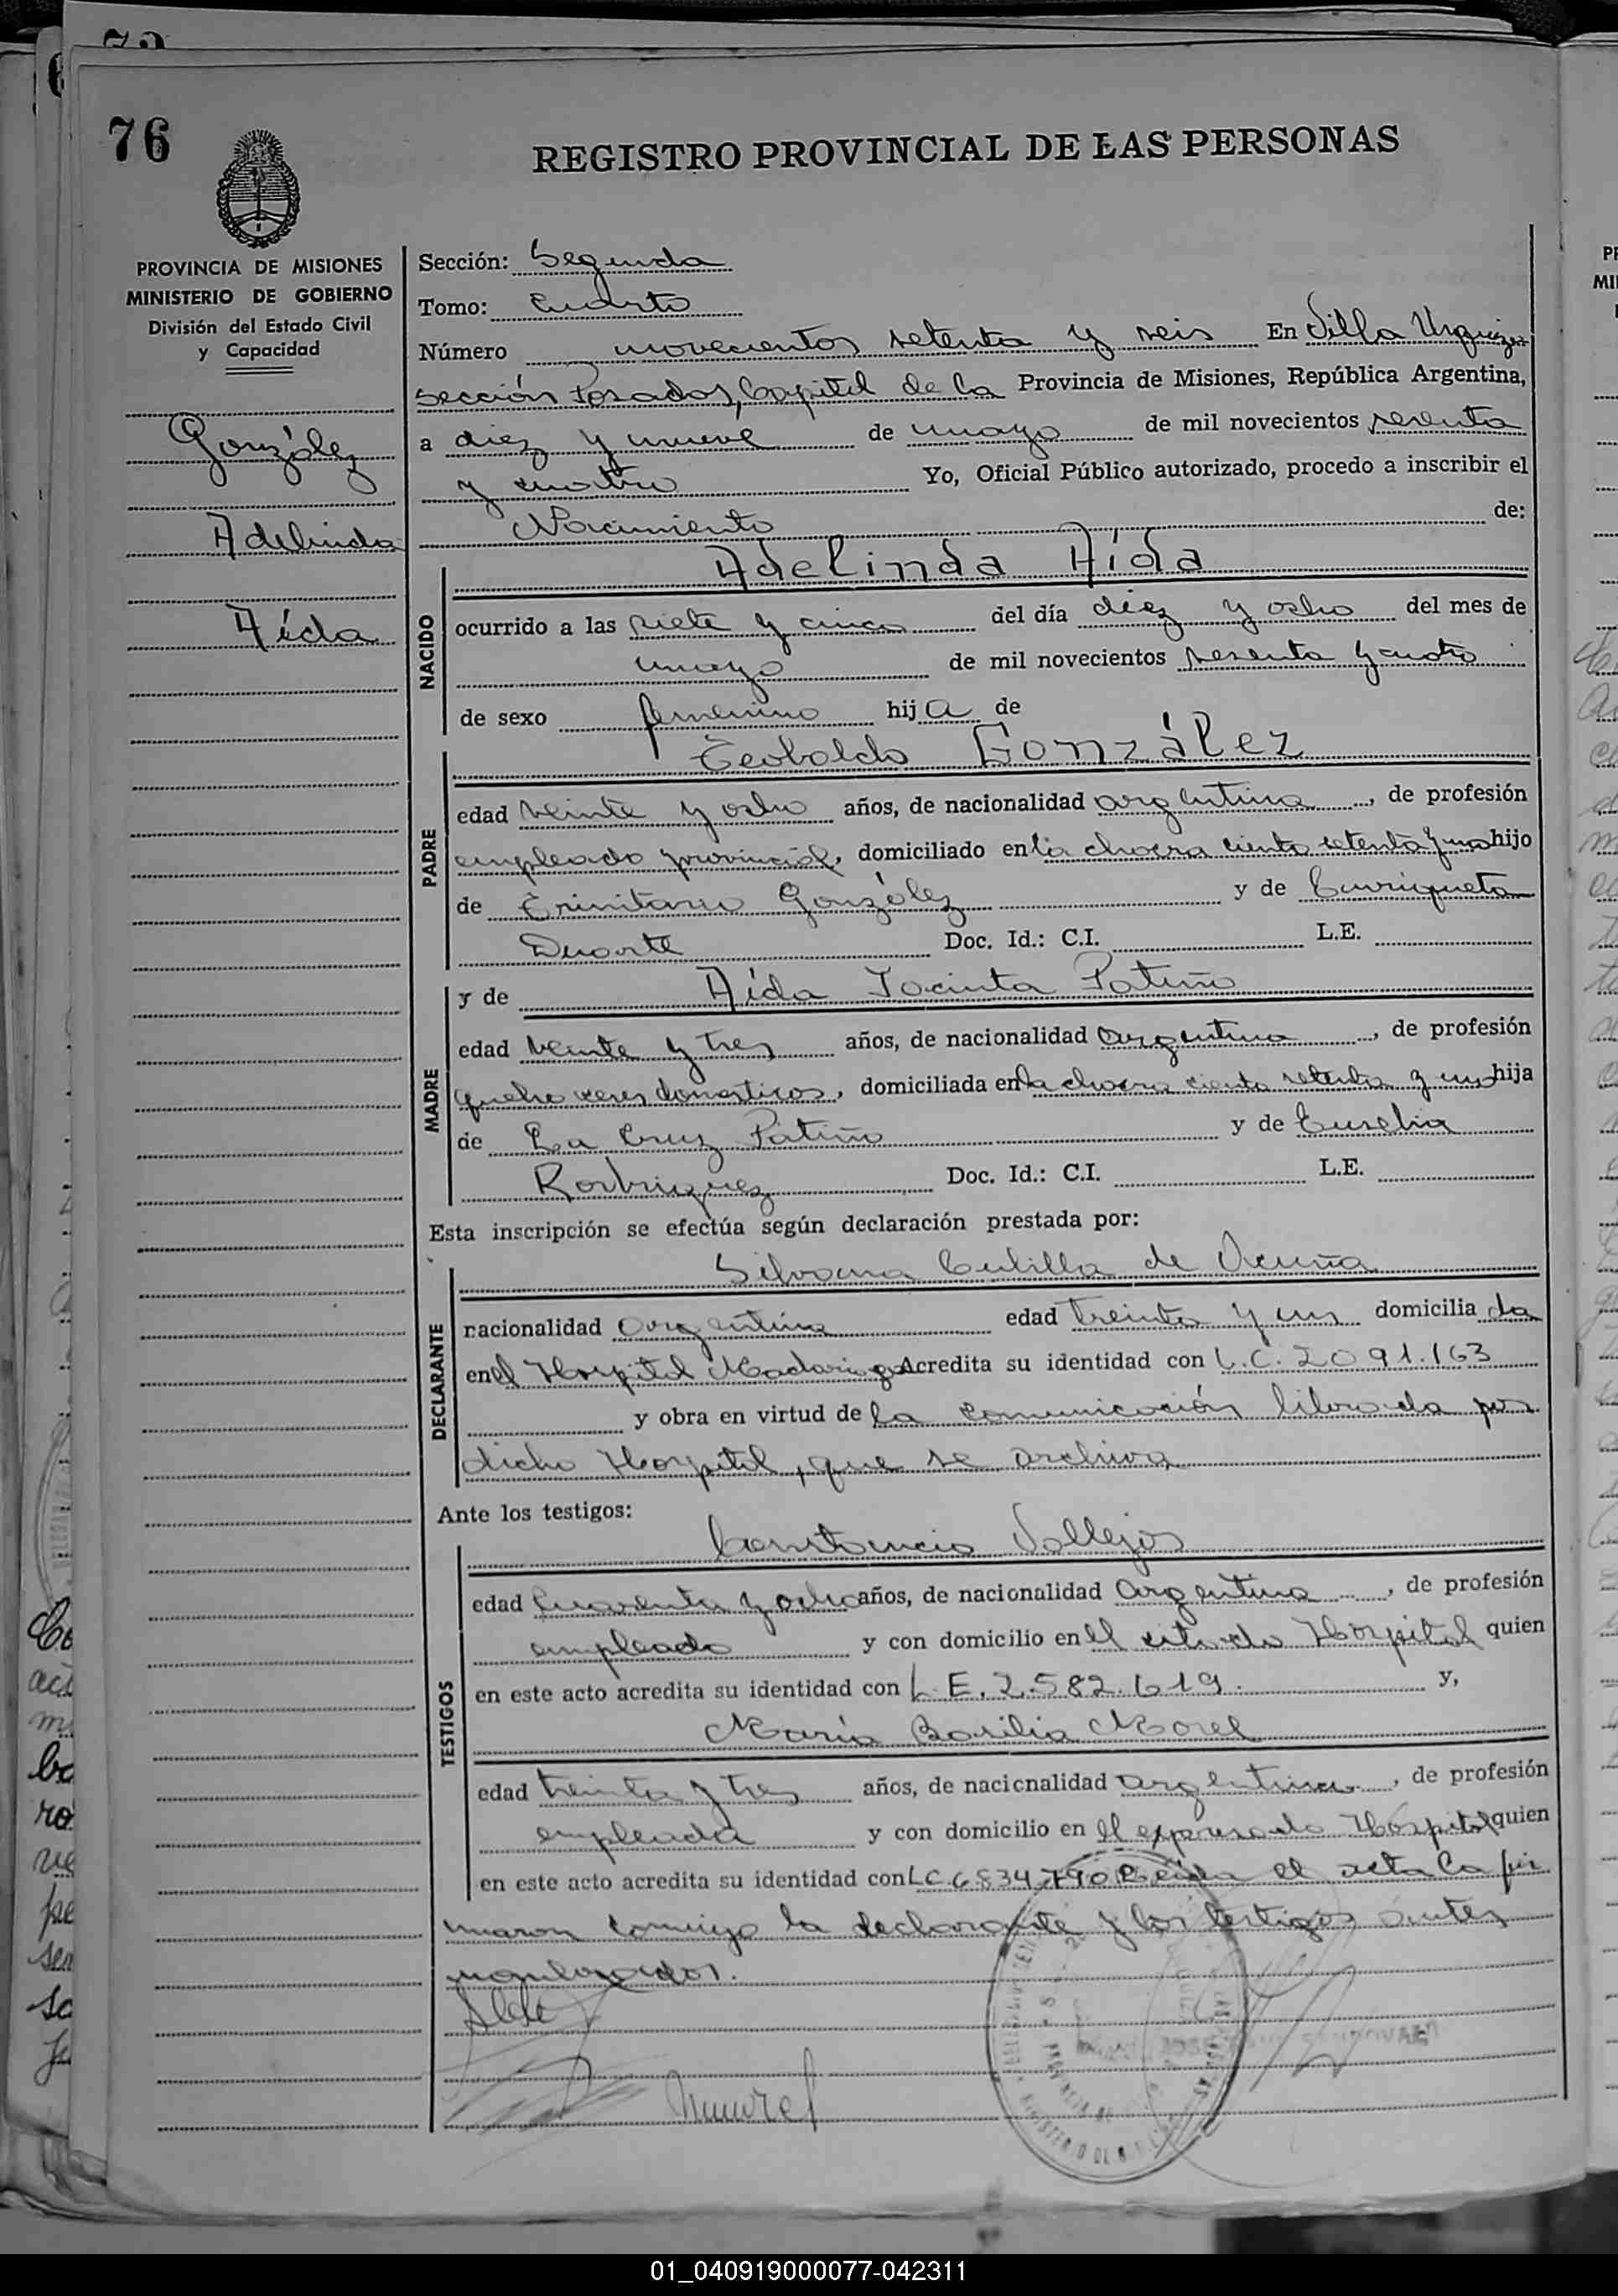 76
REGISTRO PROVINCIAL DE LAS PERSONAS
PROVINCIA DE MISIONES
MINISTERIO DE GOBIERNO
División del Estado Civil
y Capacidad
González
Adelinda
Aída
Sección: Segunda
Tomo: Cuarto
Número novecientos setenta y seis En Villa Urquiza
sección Posadas, Capital de la Provincia de Misiones, República Argentina,
a diez y nueve de mayo de mil novecientos sesenta
y cuatro Yo, Oficial Público autorizado, procedo a inscribir el
Nacimiento de:
NACIDO
Adelinda Aída
ocurrido a las siete y cinco del día diez y ocho del mes de
mayo de mil novecientos sesenta y cuatro
de sexo femenino hija de
PADRE
Teobaldo González
edad veinte y ocho años, de nacionalidad argentina, de profesión
empleado provincial, domiciliado en la chacra ciento setenta y uno hijo
de Trinitario González y de Enriqueta
Duarte Doc. Id.: C.I. L.E.
MADRE
y de Aída Jacinta Patiño
edad veinte y tres años, de nacionalidad argentina, de profesión
quehaceres domésticos, domiciliada en la chacra ciento setenta y uno hija
de La Cruz Patiño y de Eurelia
Rodriguez Doc. Id.: C.I. L.E.
Esta inscripción se efectúa según declaración prestada por:
DECLARANTE
Silvana Cubilla de Acuña
nacionalidad argentina edad treinta y un domiciliada
en el Hospital Madariaga Acredita su identidad con L.C. 2091.163
y obra en virtud de la comunicación librada por
dicho Hospital, que se archiva
Ante los testigos:
TESTIGOS
Constancio Vallejos
edad Cuarenta y ocho años, de nacionalidad argentina, de profesión
empleado y con domicilio en el citado Hospital quien
en este acto acredita su identidad con L.E. 2.582.619. y,
María Basilia Morel
edad treinta y tres años, de nacionalidad argentina, de profesión
empleada y con domicilio en el expresado Hospital quien
en este acto acredita su identidad con LC 6834790 Leída el acta la fir
maron conmigo la declarante y los testigos antes
nombrados.
01_040919000077-042311